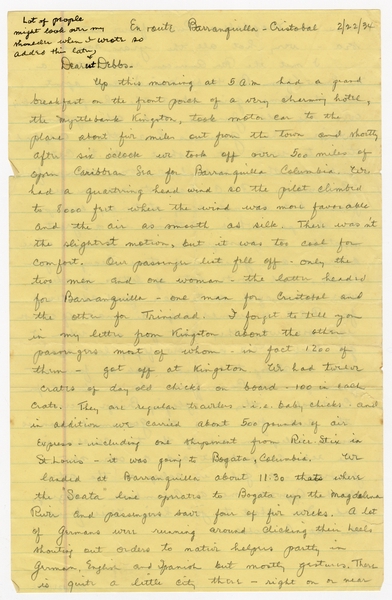 Lot of people
might look over my
shoulder when I wrote so
added this later
En route Barranquilla - Cristobal 2/22/34
Dearest Debbs.
Up this morning at 5 A.M. had a grand
breakfast on the front porch of a very charming hotel,
the Myrtlebank Kingston, took motor car to the
plane about five miles out from the town and shortly
after six oclock we took off over 500 miles of
open Caribbean Sea for Barranquilla Columbia. We
had a quartering head wind so the pilot climbed
to 8000 feet where the wind was more favorable
and the air as smooth as silk. There was'nt
the slightest motion, but it was too cool for
comfort. Our passenger list fell off - only the
two men and one woman - the latter headed
for Barranquilla - one man for Cristobal and
the other for Trinidad. I forgot to tell you
in my letter from Kingston about the other
passengers most of whom - in fact 1200 of
them - got off at Kingston. We had twelve
crates of day old chicks on board - 100 in each
crate. They are regular travelers - i.e. baby chicks - and
in addition we carried about 500 pounds of air
express - including one shipment from Rice Stix in
St Louis - it was going to Bogata, Columbia. We
landed at Barranquilla about 11:30 thats where
the "Scadta" line operates to Bogata up the Magdalena
River and passengers save four of five weeks. A lot
of Germans were running around clicking their heels
shouting out orders to native helpers partly in
German, English and Spanish but mostly gestures. There
is quite a little city there - right on or near